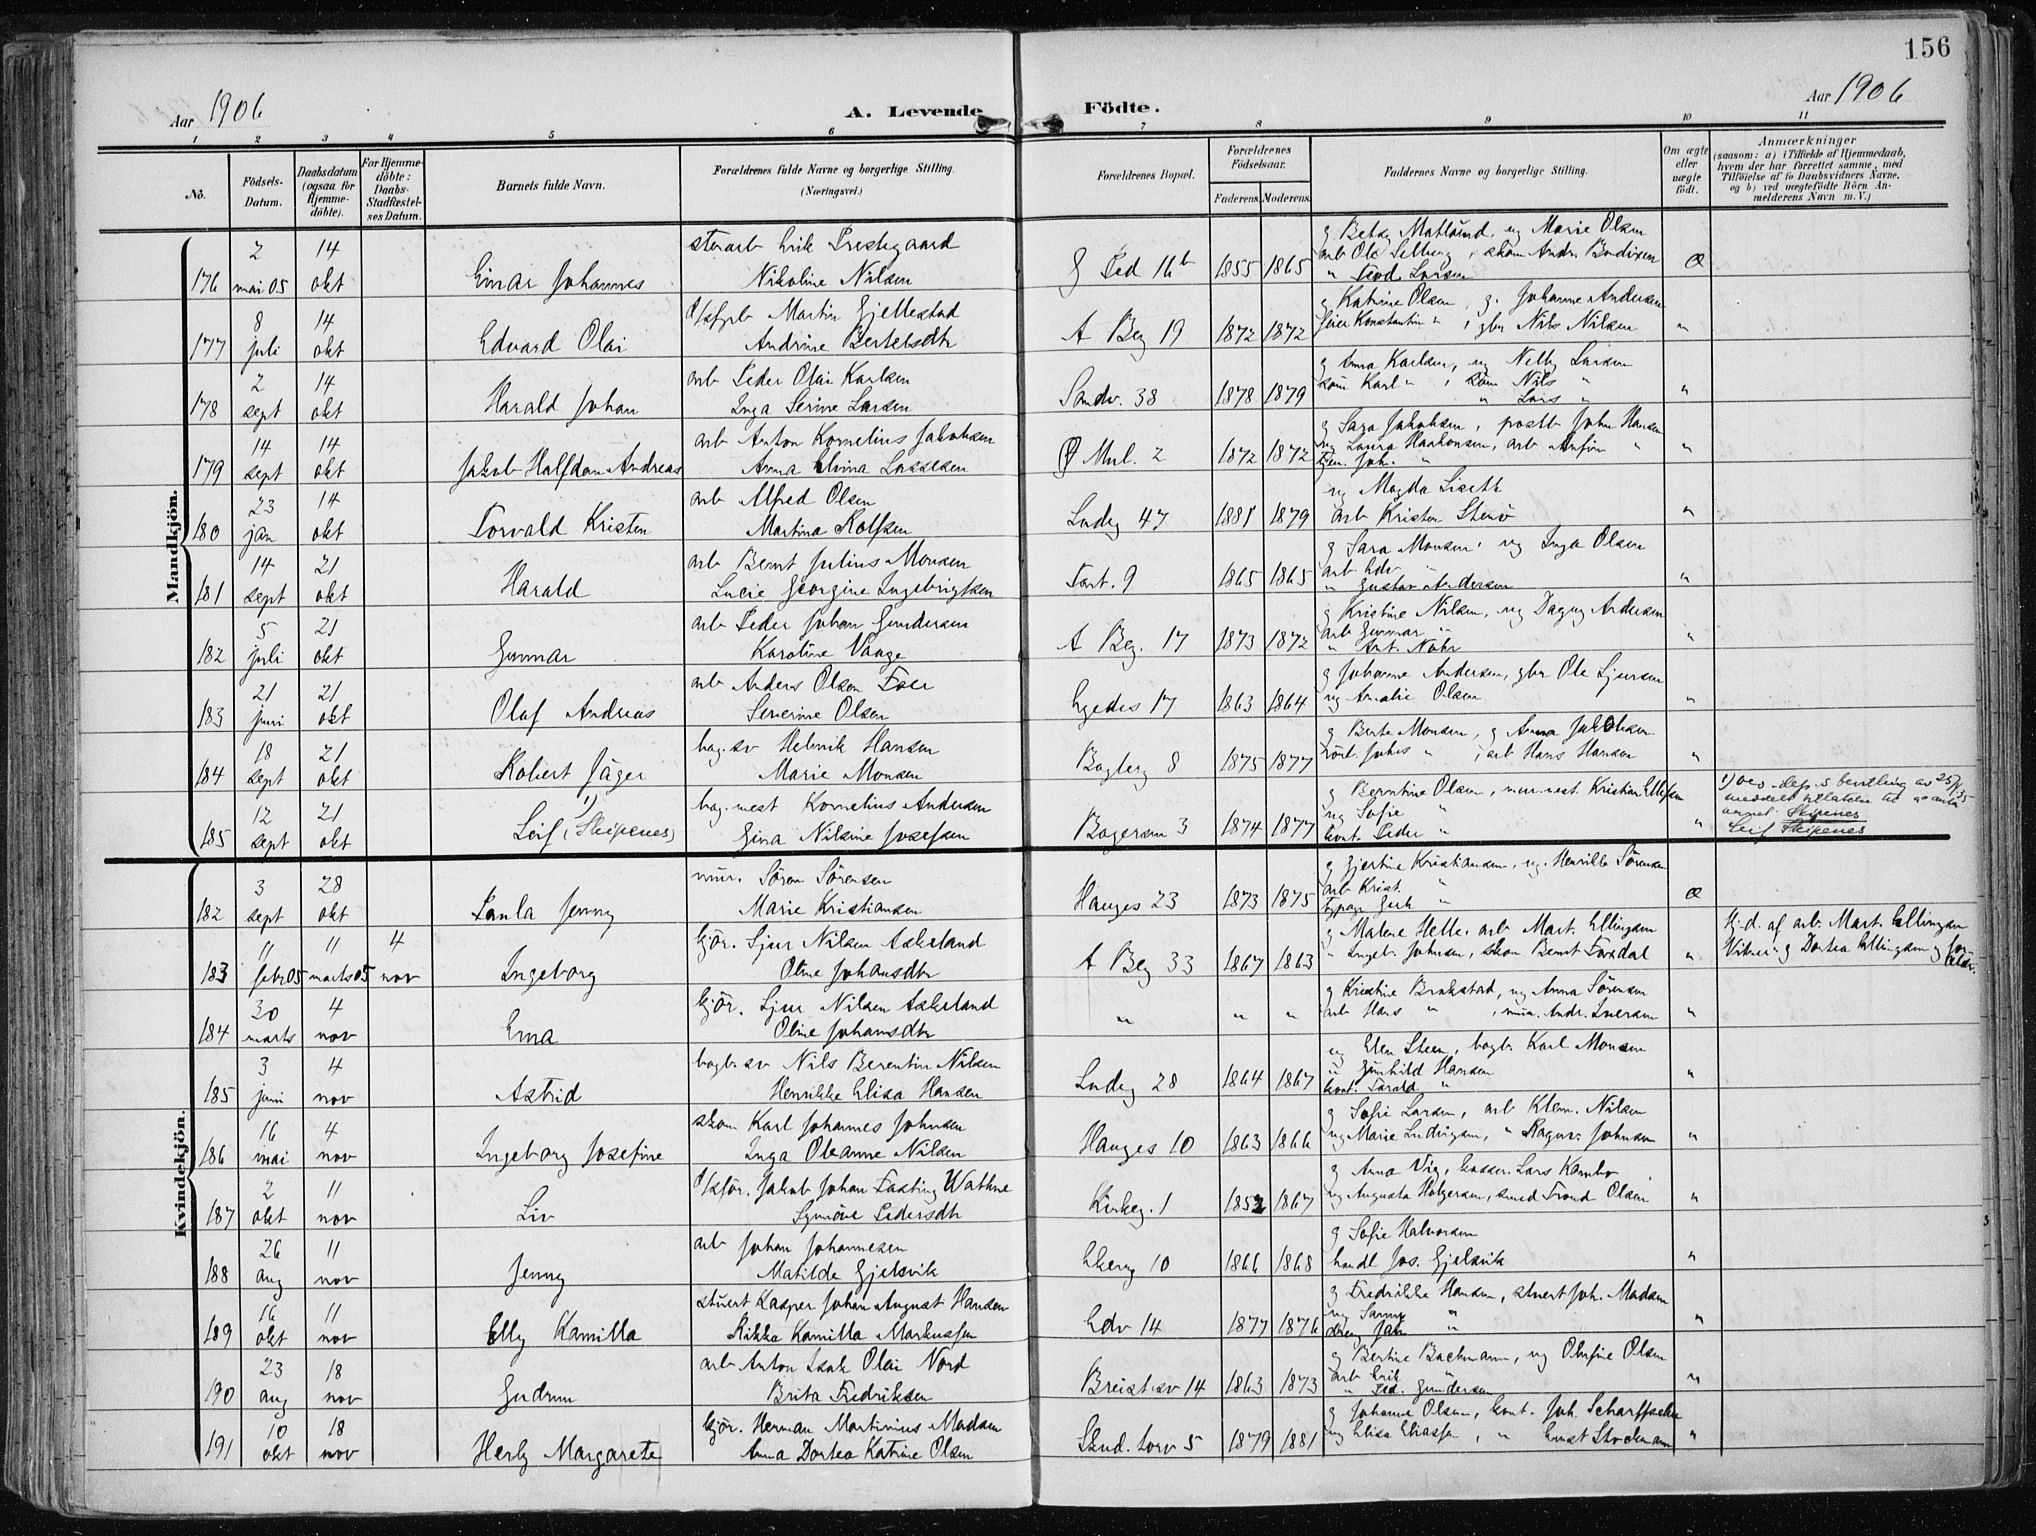 156
Aar 1906
A. Levende Födte.
Aar 1906
1 2 3 4 5 6 7 8 9 10 11
No.
Födsels-Datum.
Daabsdatum (ogsaa for Hjemme-döbte).
For Hjemme-döbte: Daabs-Stadfæstel-ses Datum.
Barnets fulde Navn.
Forældrenes fulde Navne og borgerlige Stilling. (Næringsvei.)
Forældrenes Bopæl.
Forældrenes Födselsaar.
Faderens. Moderens.
Faddernes Navne og borgerlige Stilling.
Om ægte eller uægte födt.
Anmærkninger
(saasom: a) i Tilfælde af Hjemmedaab, hvem der har forrettet samme, med Tilföielse af to Daabsvidners Navne, og b) ved uægtefödte Börn An-melderens Navn m. V.)
Mandkjön.
176 2 mai 05 14 okt Einar Johannes
Nikoline Nilsen 1855 1865 g Betsy Matland, ug Marie Olsen
177 8 juli 14 okt Edvard Olai Martin Gjellestad
Andrine Bertelsdtr A Beg 19 1872 1872 g Katrine Olsen, g. Johanne Andersen
gbr Nils Nilsen "
178 2 sept 14 okt Harald Johan arb Peder Olai Karlsen
Inga Serine Larsen Sandv. 38 1878 1879 g Anna Karlsen, ug Nelly Larsen
Karl " Nils "
" Lars " "
179 14 sept 14 okt Jakob Halfdan Andreas arb Anton Kornelius Jakobsen
Anna Elvina Lassesen Mul. 2 1872 1872 g Sara Jakobsen, postb John Hansen
ug Laura Haakonsen, arb "
180 23 jan 14 okt Torvald Kristen arb Alfred Olsen
Martina Rolfsen Ladeg 47 1881 1879 ug Magda Liseth
arb Kristen Stenö "
181 14 sept 21 okt Harald arb Bernt Julius Monsen
Lucie Georgine Ingebrigtsen 1865 1865 g Sara Monsen, ug Inga Olsen
arb Edv "
" Gustav Andersen "
182 5 juli 21 okt Gunnar arb Peder Johan Gundersen
Karoline Vaage A Beg. 17 1873 1872 g Kristine Nilsen, ug Dagny Andersen
arb Gunnar "
" Ant. "
183 21 juni 21 okt Olaf Andreas arb Anders Olsen
Severine Olsen Egedes 17 1863 1864 g Johanne Andersen, gbr Ole Sjursen
ug Amalie Olsen "
184 18 sept 21 okt Robert Jäger bag.sv Henrik Hansen
Marie Monsen Bagleg 8 1875 1877 g Berte Monsen, g Anna Jakobsen
Johs " arb Hans Hansen "
185 12 sept 21 okt Leif 1) (Skipenes) bag.mest Kornelius Andersen
Gina Nilsine Josefsen 1874 1877 g Berntine Olsen, mur.mest. Kristian Ellefsen
ug Sofie "
kont. Peder " "
1) ved 25/ 35
meddelt tillatelse til
Skipenes
Leif Skipenes
Kvindekjön.
182 3 sept 28 okt Paula Jenny mur. Sören Sörensen
Marie Kristiansen Hauges 23 1873 1875 g Gjertine Kristiansen, ug. Henrikke Sörensen
arb Krist. " Æ
183 11 febr 05 11 marts 05 4 nov Ingeborg kjör. Sjur Nilsen Askeland
Oline Johansdtr A Beg 33 1867 1863 g Malene Helle, arb Mart. Ellingsen
" Ingeb. Johnsen, skom Bernt Fordal "
Hj.d. af arb. Mart. Ellingsen
Dortea Ellingsen
184 30 marts 4 nov Erna kjör. Sjur Nilsen Askeland
Oline Johansdtr " " " g Kristine Brakstad, ug Anna Sörensen
arb Hans " mur. Andr. Iversen "
185 3 juni 4 nov Astrid bagb.sv Nils Berentin Nilsen
Henrikke Elisa Hansen Ladeg 28 1864 1867 ug Elen Steen, bagb Karl Monsen
" Gunhild Hansen
kont. Harald " "
186 16 mai 4 nov Ingeborg Josefine skom Karl Johannes Johnsen
Inga Oleanne Nilsen Hauges 10 1863 1866 g Sofie Larsen, arb Klem. Nilsen
ug Marie Ludvigsen, " Ragnv. Johnsen "
187 2 okt 11 nov Liv Jakob Johan Fasting Wathne
Synnöve Pedersdtr Kirkeg. 1 1852 1867 g Anna Vig, kasser. Lars
ug Augusta Holgersen, smed Trond Olsen "
188 26 aug 11 nov Jenny arb Johan Johannesen
Matilde Gjelsvik 10 1866 1868 g Sofie Halvorsen
handl Jos. Gjelsvik "
189 16 okt 11 nov Elly Kamilla stuert Kasper Johan August Hansen
Rikka Kamilla Markussen Edv 14 1877 1876 g Fredrikke Hansen, stuert Joh. Madsen
ug Sanna "
" "
190 23 aug 18 nov Gudrun arb Anton Isak Olai Nord
Brita Fredriksen Breistsv 14 1863 1873 g Bertine Bachmann, ug Olufine Olsen
arb Erik "
" Ped. Gundersen "
191 10 okt 18 nov Herly Margarete kjör. Herman Martinius Madsen
Anna Dortea Katrine Olsen Sand. torv 5 1879 1881 g Johanne Olsen, kont. Joh.
ug Elisa Eliassen, " Ernst Stockmann "